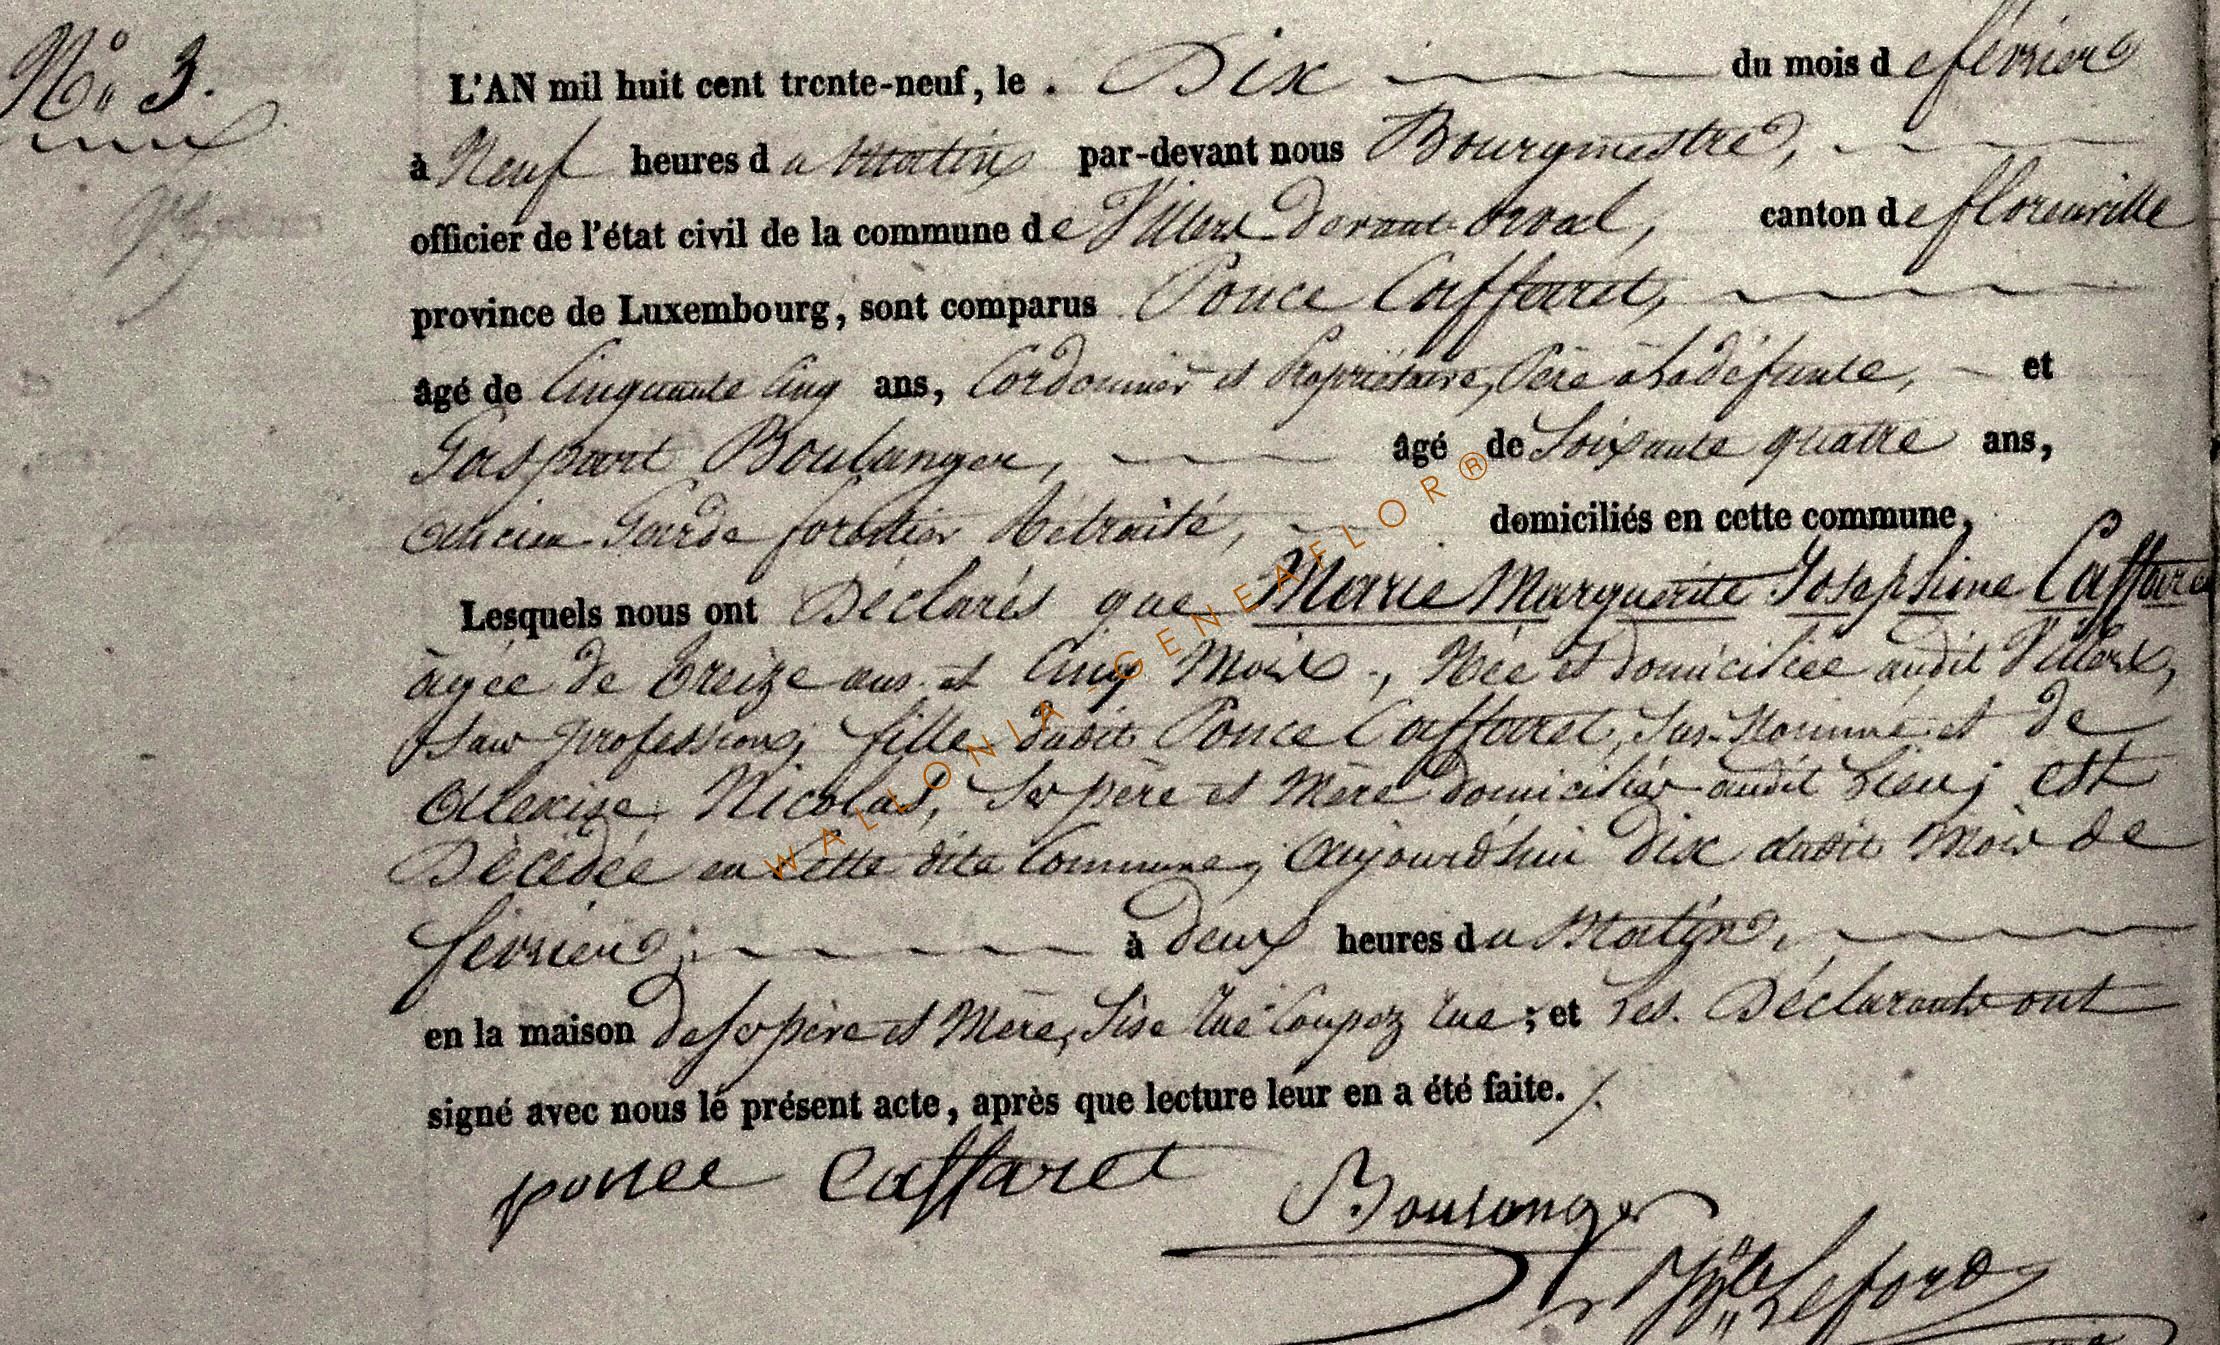 N° 3.
L'AN mil huit cent trente-neuf, le . Dix du mois de février
à Neuf heures du Matin par-devant nous Bourgmestre,
officier de l'état civil de la commune de Villers devant Orval, canton de florenville
province de Luxembourg, sont comparus Ponce Caffaret,
âgé de Cinquante Cinq ans, Cordonnier et Propriétaire, Père à la défunte, et
Gaspart Boulanger, âgé de Soixante quatre ans,
ancien Garde forestier Retraité, domiciliés en cette commune,
Lesquels nous ont Déclarés que Marie Marguerite Josephine Caffaret
âgée de treize ans et Cinq Mois, Née et domiciliée audit Villers,
Sans profession, fille dudit Ponce Caffaret, Sus-Nommé et de
Alexise Nicolas, Ses père et Mère domiciliés audit Lieu; est
Décédée en Cette dite Commune, Aujourd'hui dix dudit Mois de
février; à deux heures du Matin,
en la maison de ses père et Mère, Sise rue Coupez rue; et Les Déclarants ont
signé avec nous le présent acte, après que lecture leur en a été faite./.
ponce Caffaret
Boulanger
WALLONIA-GENEAFLOR®